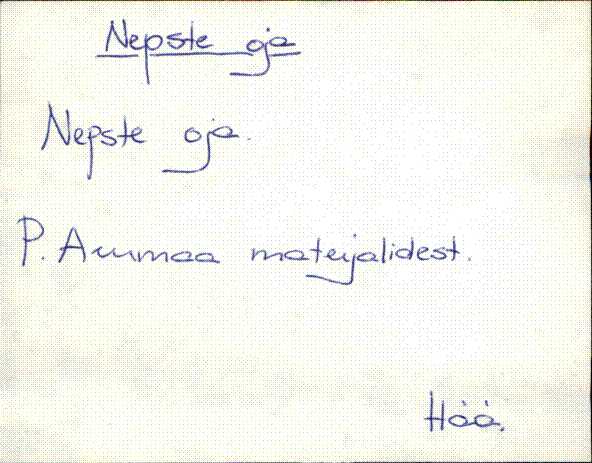 Nepste oja
Nepste oja.
P. Aumaa materjalidest.
Hää.